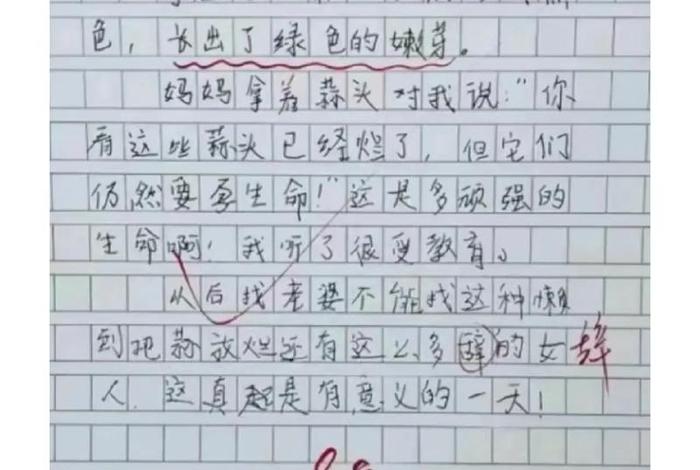 色，长出了绿色的嫩芽。
妈妈拿着蒜头对我说："你
看这些蒜头已经烂了，但它们
仍然要孕生命！"这是多顽强的
生命啊！我听了很受教育。
从后找老婆不能找这种懒
到把蒜放烂还有这么多辞的女
人，这真是有意义的一天！